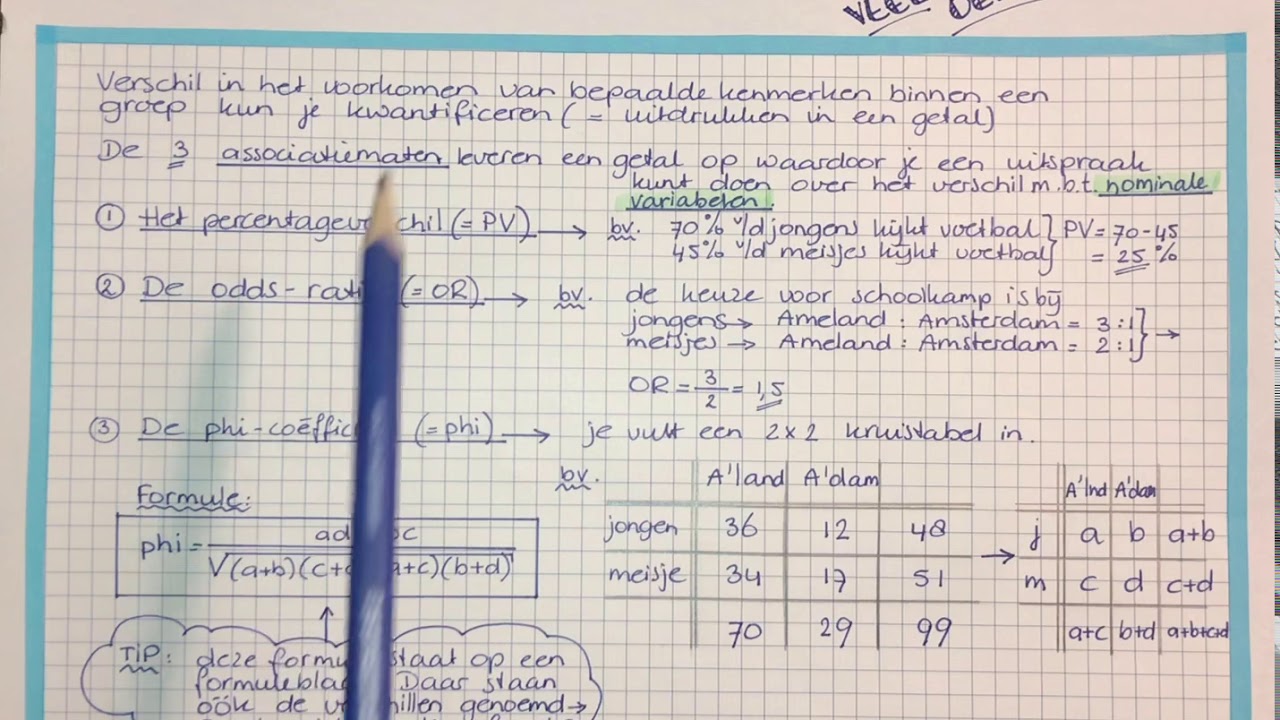 VEEL
Verschil in het voorkomen van bepaalde kenmerken binnen een
groep kun je kwantificeren (= uitdrukken in een getal)
De 3 associatiematen leveren een getal op waardoor je een uitspraak
kunt doen over het verschil m.b.t. nominale
variabelen.
① Het percentagev chil (= PV) → bv. 70% v/d jongens kijkt voetbal } PV = 70-45
45% v/d meisjes kijkt voetbal } = 25 %
② De odds-rati (= OR) → bv. de keuze voor schoolkamp is bij
jongens → Ameland : Amsterdam = 3:1 } →
meisjes → Ameland : Amsterdam = 2:1 }
OR = 3/2 = 1,5
③ De phi-coëffic (= phi) → je vult een 2x2 kruistabel in.
bv. A'land A'dam
A'lnd A'dam
Formule:
jongen 36 12 48 → j a b a+b
phi = ad bc
√(a+b)(c+ a+c)(b+d)
meisje 34 17 51 m c d c+d
70 29 99 a+c b+d a+b+c+d
TIP: deze form staat op een
formulebla Daar staan
óók de v hillen genoemd →